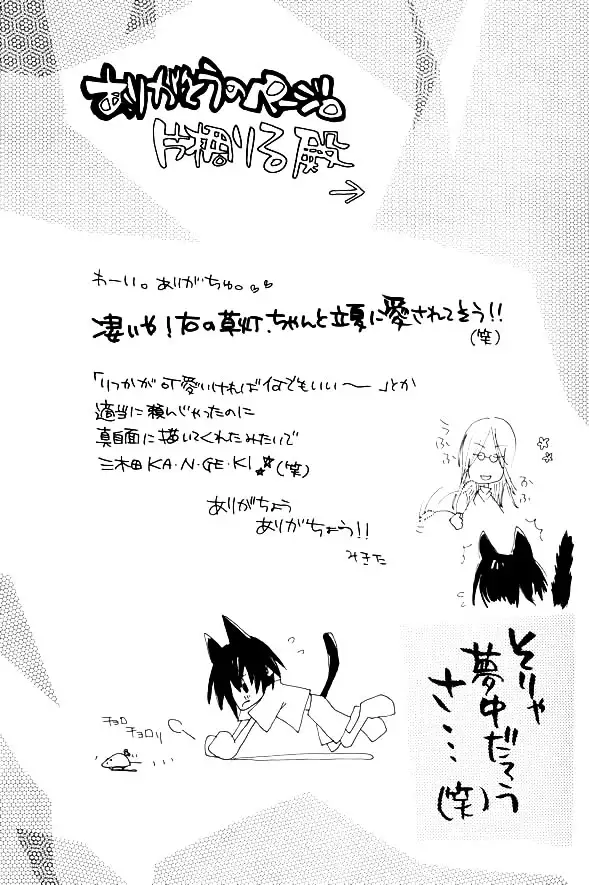 ありがとうのページ。
片桐りる殿
→
わーい。ありがちゅ。♡♡
凄いや!右の草灯、ちゃんと立夏に愛されてそう!!
(笑)
「りつかが可愛いければ何でもいい〜」とか
適当に頼んじゃったのに
真面目に描いてくれたみたいで
三木田KA・N・GE・KI☆(笑)
ありがちょう
ありがちょう!!
みきた
うふふ
ふふ
チョロ
チョロリ
そりゃ
夢中だてう
さ…
(笑)